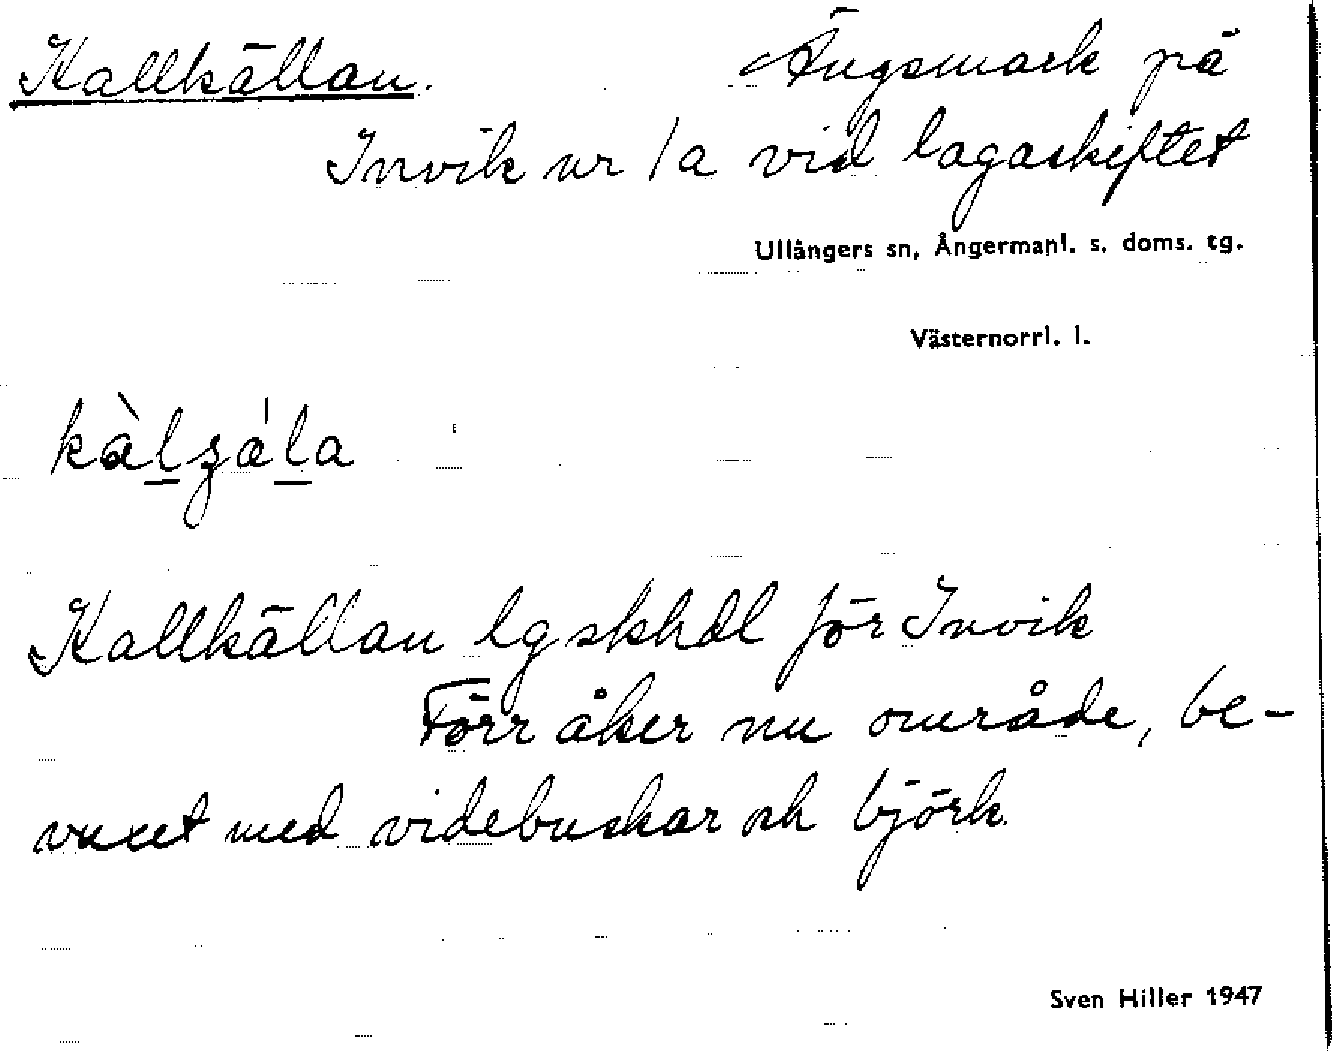 Kallkällan. Ängsmark på
Invik nr 1a vid lagaskiftet
Ullångers sn, Ångermanl. s. doms. tg.
Västernorrl. l.
kàlʒála
Kallkällan lgskhdl för Invik
Förr åker nu område, be-
vuxet med videbuskar och björk.
Sven Hiller 1947